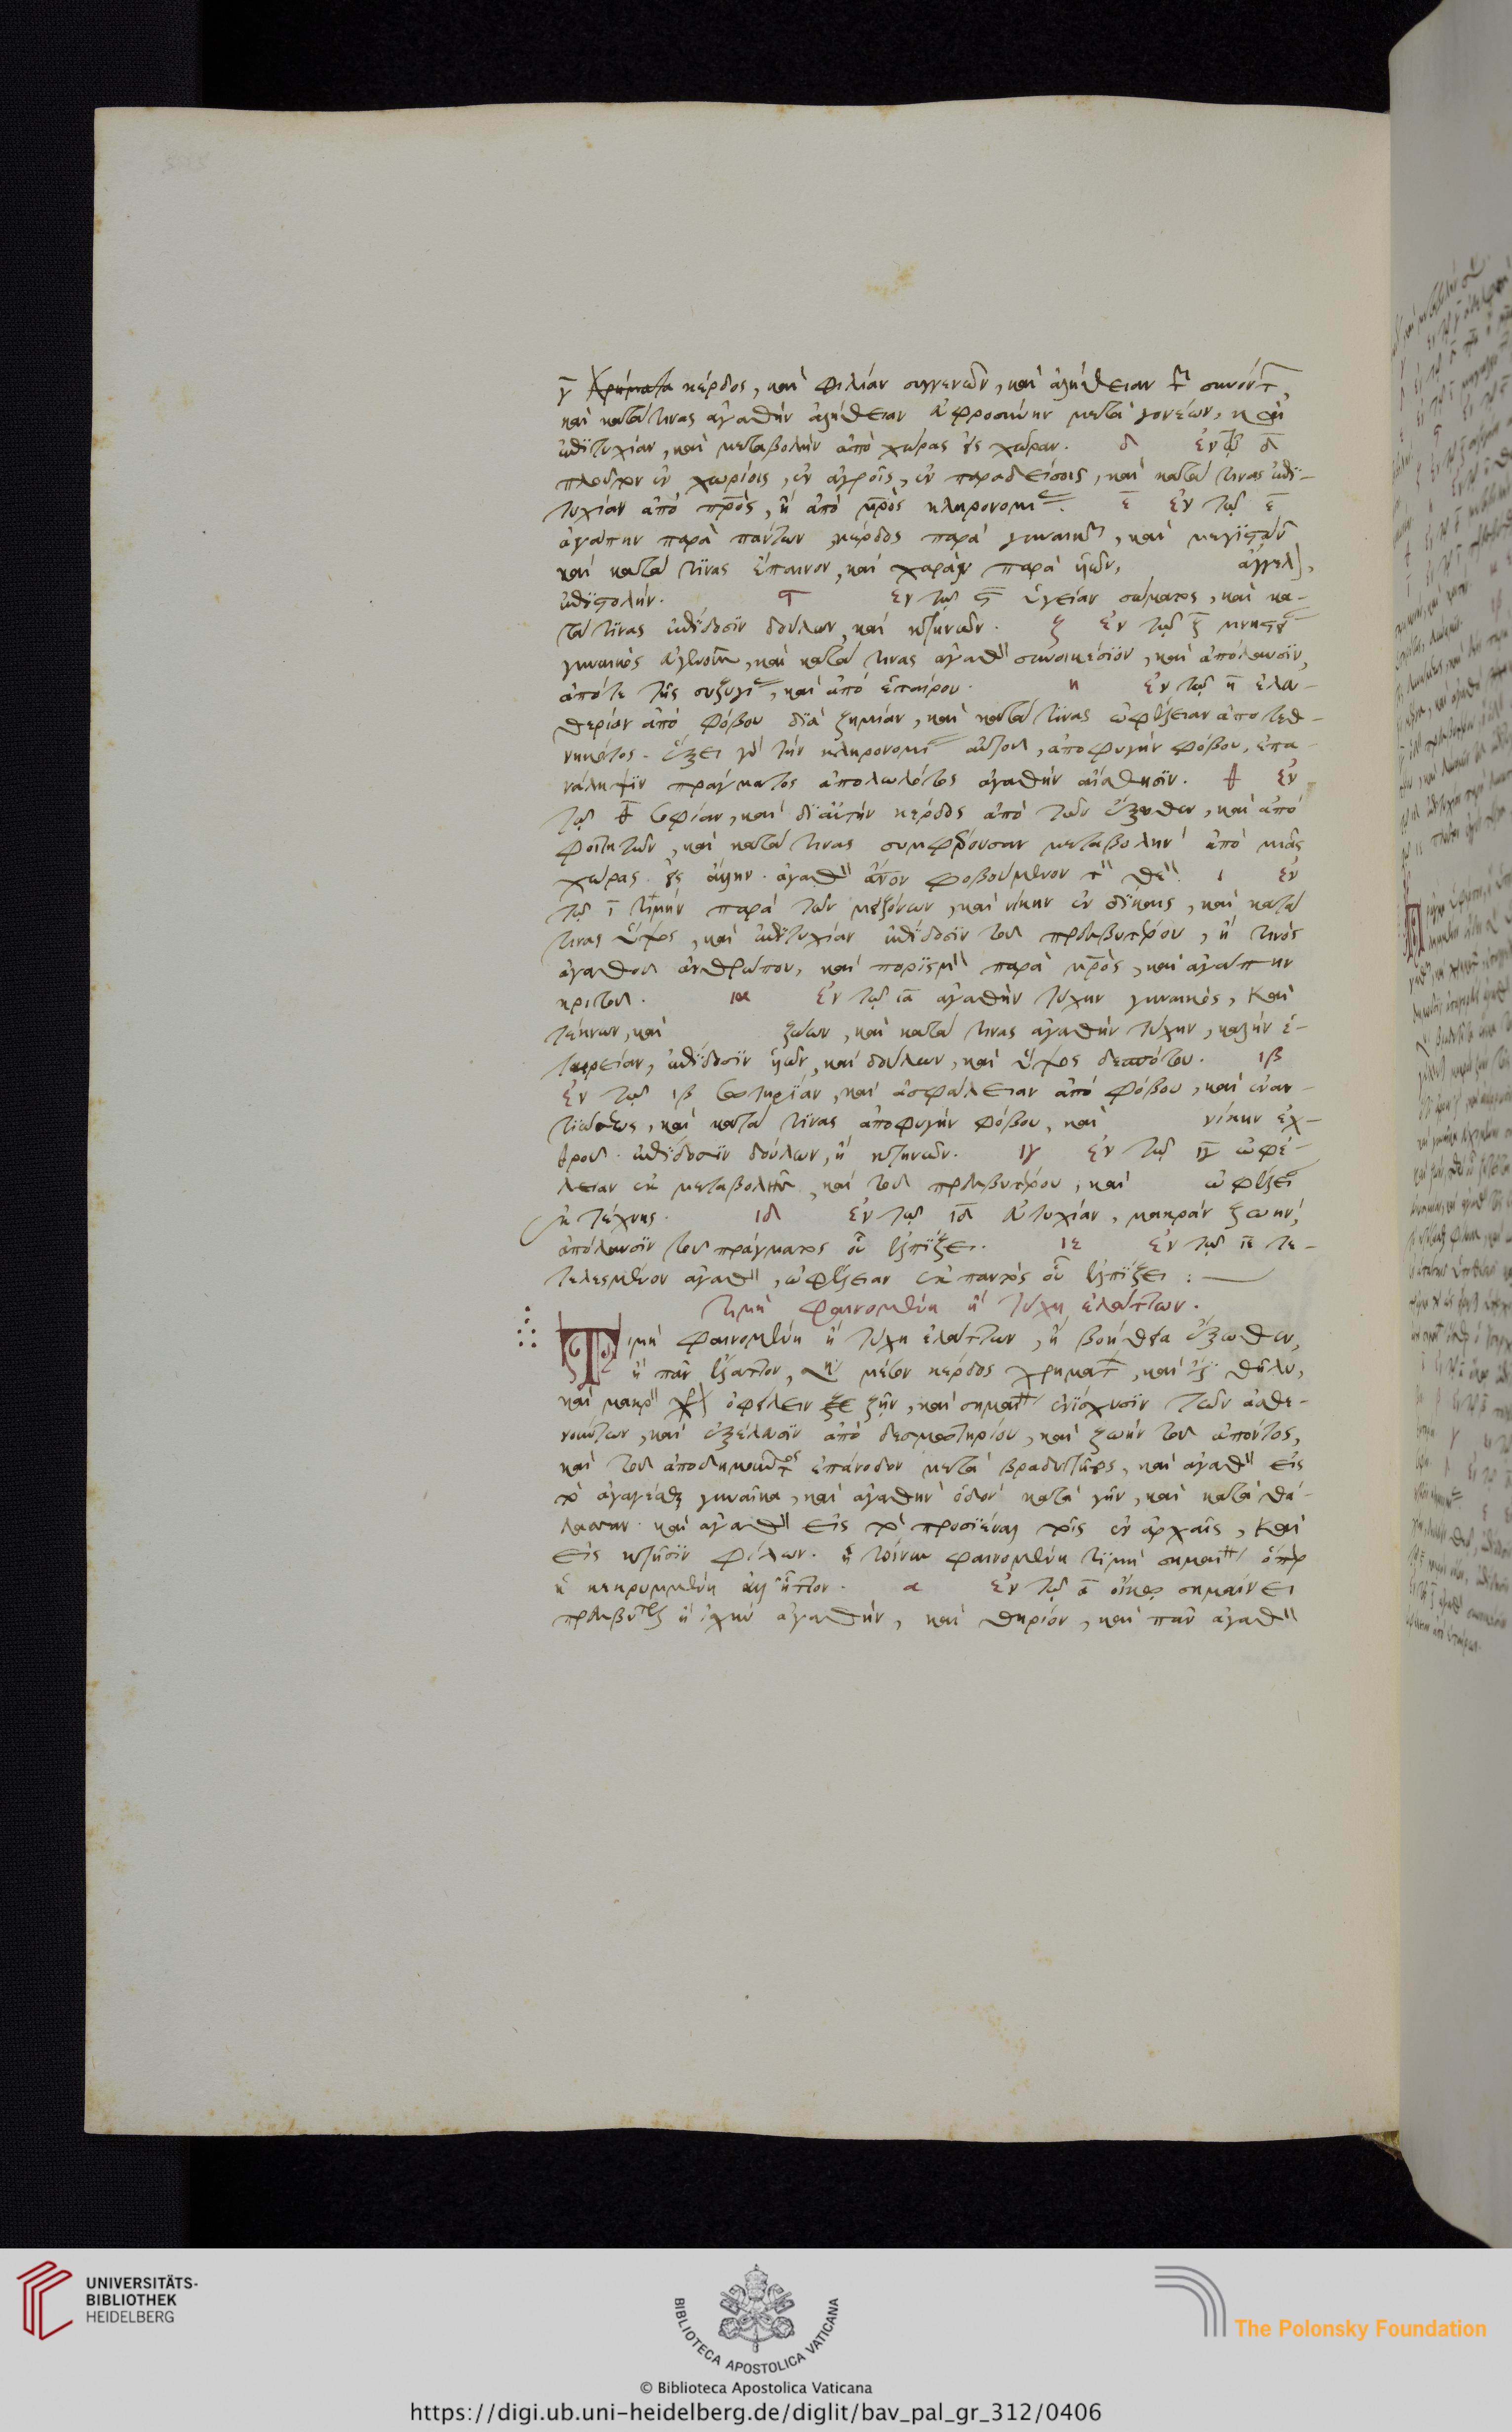 γ̅ χρήματα κέρδος, καὶ φιλίαν συγγενῶν, καὶ ἀλήθειαν
καὶ κατά τινας ἀγαθὴν ἀλήθειαν εὐφροσύνην μετὰ γονέων,
ἐπιτυχίαν, καὶ μεταβολὴν ἀπὸ χώρας εἰς χώραν. δ ἐν τῷ δ̅
πλοῦτον ἐν χωρίοις, ἐν ἀγροῖς, ἐν παραδείσοις, καὶ κατά τινας ἐπι-
τυχίαν ἀπὸ πρ̅ὸς, ἢ ἀπὸ μρ̅ὸς κληρονομι. ε ἐν τῷ ε̅
ἀγάπην παρὰ πάντων, κέρδος παρὰ γυναικῶν, καὶ μεγιστάνων
καὶ κατά τινας ἔπαινον, καὶ χαρὰν παρὰ
ἐπιστολήν. ϛ ἐν τῷ ϛ̅ ὑγείαν σώματος, καὶ κα-
τά τινας ἐπίδοσιν δούλων, καὶ κτηνῶν. ζ ἐν τῷ ζ̅
γυναικὸς καὶ κατά τινας ἀγαθὸν συνοικέσιον, καὶ ἀπόλαυσιν,
ἀπό τε τῆς συζυγι, καὶ ἀπὸ ἑταίρου. η ἐν τῷ η̅ ἐλευ-
θερίαν ἀπὸ φόβου διὰ ζημίαν, καὶ κατά τινας ὠφέλειαν ἀπὸ τεθ-
νηκότος. ἕξει γὰρ τὴν κληρονομι αὐτοῦ, ἀποφυγὴν φόβου, ἐπα-
νάληψιν πράγματος ἀπολωλότος ἀγαθὴν αἴσθησιν. θ ἐν
τῷ θ̅ σοφίαν, καὶ δι' αὐτὴν κέρδος ἀπὸ τῶν ἔξωθεν, καὶ ἀπὸ
φοιτητῶν, καὶ κατά τινας συμφέρουσαν μεταβολὴν ἀπὸ μιᾶς
χώρας εἰς ἄλλην. ἀγαθὸν ἄν̅ον φοβούμενον τὸν θεόν. ι ἐν
τῷ ι̅ τιμὴν παρὰ τῶν μειζόνων, καὶ νίκην ἐν δίκαις, καὶ κατά
τινας ὕψος, καὶ ἐπιτυχίαν ἐπίδοσιν τοῦ πρεσβυτέρου, ἢ τινὸς
ἀγαθοῦ ἀνθρώπου, καὶ πορισμὸν παρὰ μρ̅ὸς, καὶ ἀγάπην
κριτοῦ. ια ἐν τῷ ια̅ ἀγαθὴν τύχην γυναικὸς, καὶ
τέκνων, καὶ ζώων, καὶ κατά τινας ἀγαθὴν τύχην, καλὴν ἑ-
ταιρείαν, ἐπίδοσιν υἱῶν, καὶ δούλων, καὶ ὕψος δεσπότου. ιβ
ἐν τῷ ιβ σωτηρίαν, καὶ ἀσφάλειαν ἀπὸ φόβου, καὶ ἐναν-
τιώσεως, καὶ κατά τινας ἀποφυγὴν φόβου, καὶ νίκην ἐχ-
θροῦ. ἐπίδοσιν δούλων, ἢ κτηνῶν. ιγ ἐν τῷ ιγ̅ ὠφέ-
λειαν ἐκ μεταβολῆς, καὶ τοῦ πρεσβυτέρου, καὶ
ἐκ τέχνης. ιδ ἐν τῷ ιδ̅ εὐτυχίαν, μακρὰν ζωὴν,
ἀπόλαυσιν τοῦ πράγματος οὗ ἐλπίζει. ιε ἐν τῷ ιε̅ τε-
τελεσμένον ἀγαθὸν, ὠφέλειαν ἐκ παντὸς οὗ ἐλπίζει :
τιμὴ φαινομένη ἡ τύχη ἐλάττων.
Τιμὴ φαινομένη ἡ τύχη ἐλάττων, ἡ βοήθεια ἔξωθεν,
ἢ πᾶν ἔλαττον, μέσον κέρδος χρημάτων, καὶ θῆλυ,
καὶ μακρὸν ὀφείλειν ζῆν, καὶ σημαίνει ἐνίσχυσιν τῶν ἀσθε-
νούντων, καὶ ἐξέλευσιν ἀπὸ δεσμωτηρίου, καὶ ζωὴν τοῦ ἀπόντος,
καὶ τοῦ ἀποδημοῦντος ἐπάνοδον μετὰ βραδύτητος, καὶ ἀγαθὸν εἰς
τὸ ἀγαγέσθαι γυναῖκα, καὶ ἀγαθὴν ὁδὸν κατὰ γῆν, καὶ κατὰ θά-
λασσαν. καὶ ἀγαθὸν εἰς τὸ προσιέναι τοῖς ἐν ἀρχαῖς, καὶ
εἰς κτῆσιν φίλων. ἡ τοίνυν φαινομένη τιμὴ σημαίνει ὅπερ
ἡ κεκρυμμένη ἀλλ' ἧττον. α ἐν τῷ α̅ οἴκῳ σημαίνει
ἀγαθὴν, καὶ θηρίον, καὶ πᾶν ἀγαθὸν
UNIVERSITÄTS-
BIBLIOTHEK
HEIDELBERG
BIBLIOTECA APOSTOLICA VATICANA
The Polonsky Foundation
© Biblioteca Apostolica Vaticana
https://digi.ub.uni-heidelberg.de/diglit/bav_pal_gr_312/0406